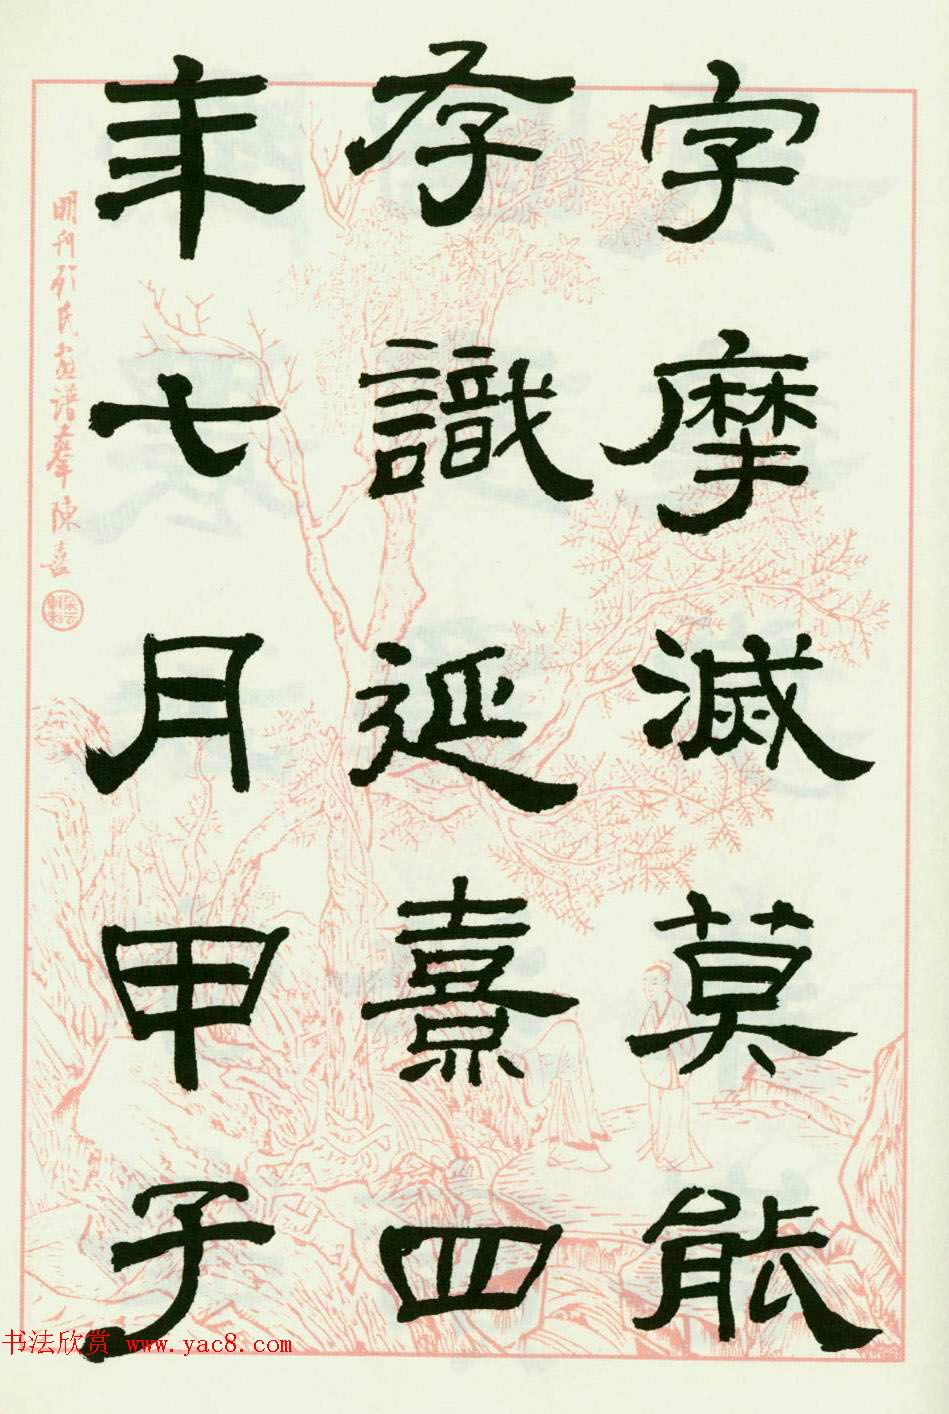 字摩滅莫能
存識延熹四
年七月甲子
明刊顾氏画谱摹陳喜
书法欣赏 www.yac8.com